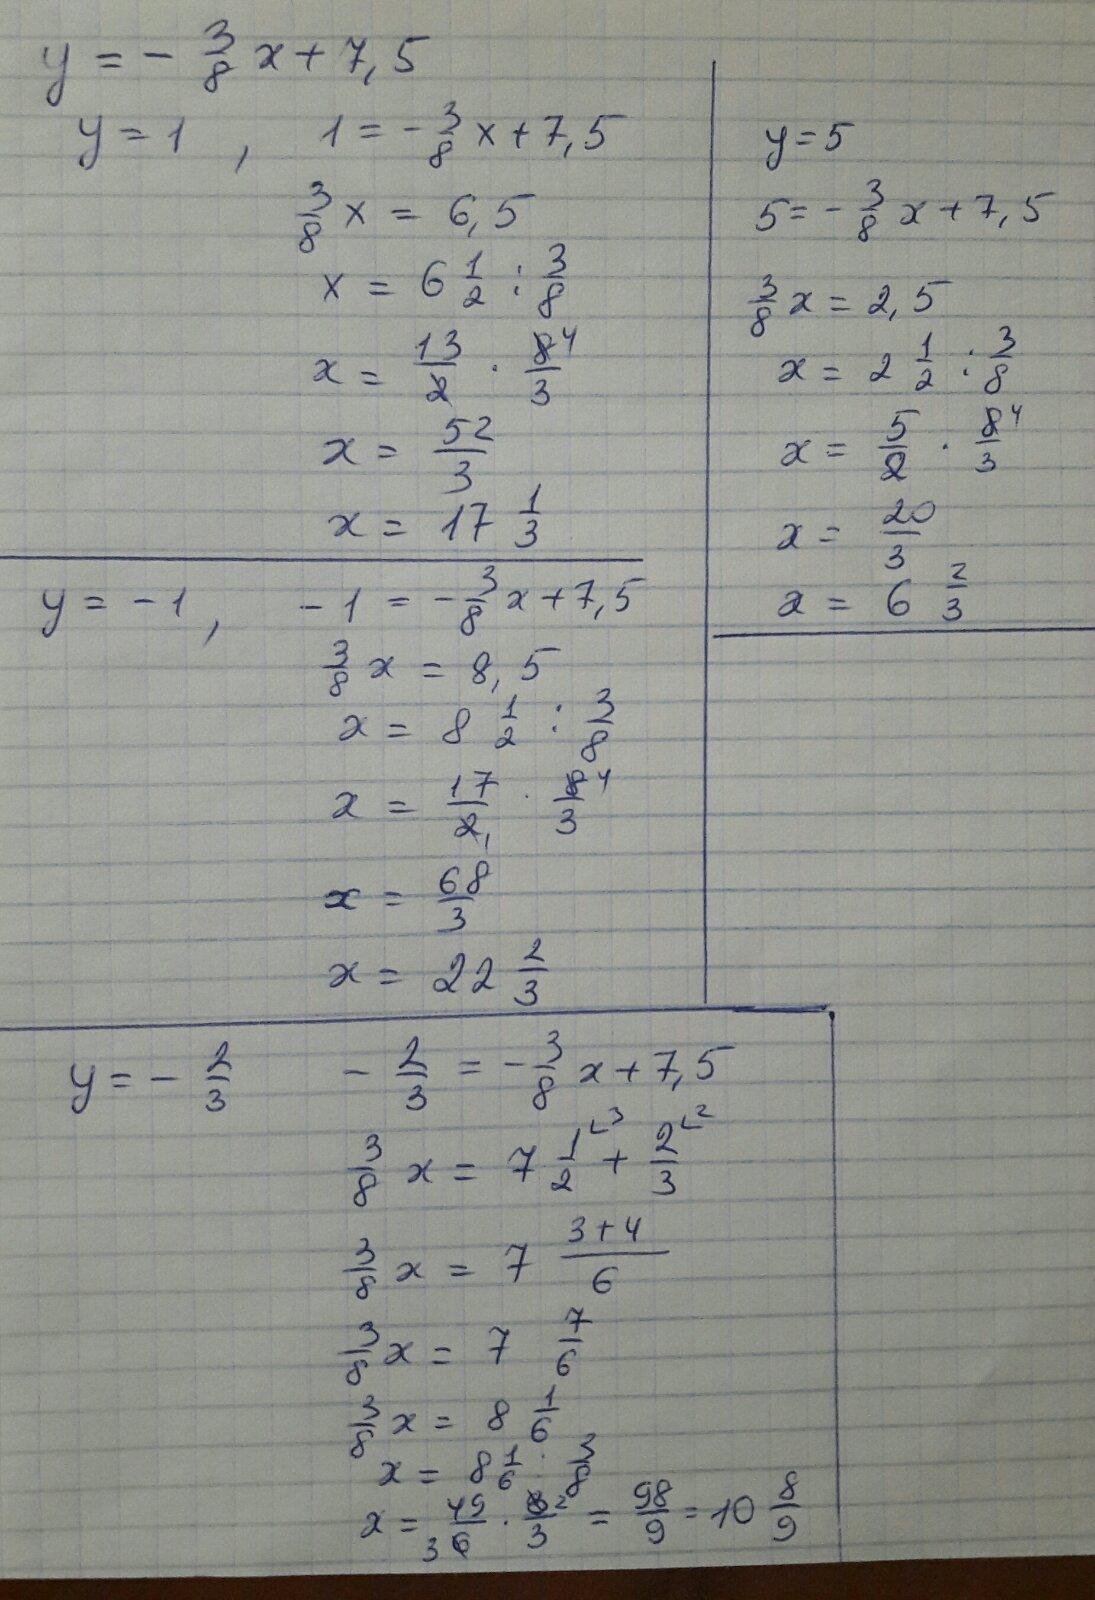 y = - 3/8 x + 7,5
y = 1 , 1 = - 3/8 x + 7,5
3/8 x = 6,5
x = 6 1/2 : 3/8
x = 13/2 · 8/3 4
x = 52/3
x = 17 1/3
y = 5
5 = - 3/8 x + 7,5
3/8 x = 2,5
x = 2 1/2 : 3/8
x = 5/2 · 8/3 4
x = 20/3
x = 6 2/3
y = -1 , -1 = - 3/8 x + 7,5
3/8 x = 8,5
x = 8 1/2 : 3/8
x = 17/2 1 · 8/3 4
x = 68/3
x = 22 2/3
y = - 2/3 - 2/3 = - 3/8 x + 7,5
3/8 x = 7 1/2 ⌞3 + 2/3 ⌞2
3/8 x = 7 (3+4)/6
3/8 x = 7 7/6
3/8 x = 8 1/6
x = 8 1/6 : 3/8
x = 49/6 3 · 8/3 2 = 98/9 = 10 8/9